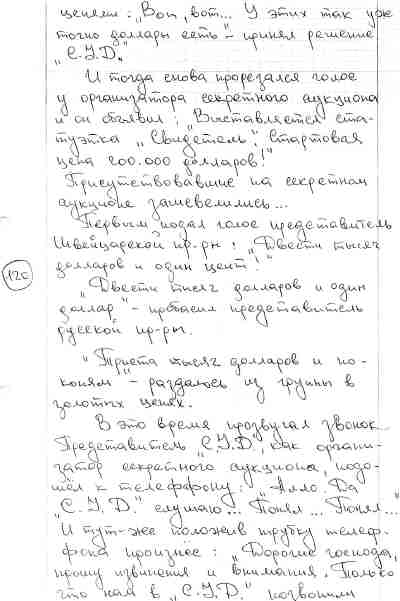 цепями: „Вон, вот... У этих так уж
точно доллары есть" – принял решение
„С.У.Д."
И тогда снова прорезался голос
у организатора секретного аукциона
и он объявил: „Выставляется ста-
туэтка „Свидетель". Стартовая
цена 200.000 долларов!"
Присутствовавшие на секретном
аукционе зашевелились...
Первым подал голос представитель
Швейцарской пр-ры: „Двести тысяч
долларов и один цент!"
12с
„Двести тысяч долларов и один
доллар" – пробасил представитель
русской пр-ры.
„Триста тысяч долларов и по-
коням" – раздалось из группы в
золотых цепях.
В это время прозвучал звонок.
Представитель „С.У.Д.", как органи-
затор секретного аукциона, подо-
шёл к телефону: „Алло. Да
„С.У.Д." слушаю... Понял... Понял..."
И тут-же положив трубку телеф-
фона произнес: „Дорогие господа,
прошу извинения и внимания. Только
что нам в „С.У.Д." позвонили